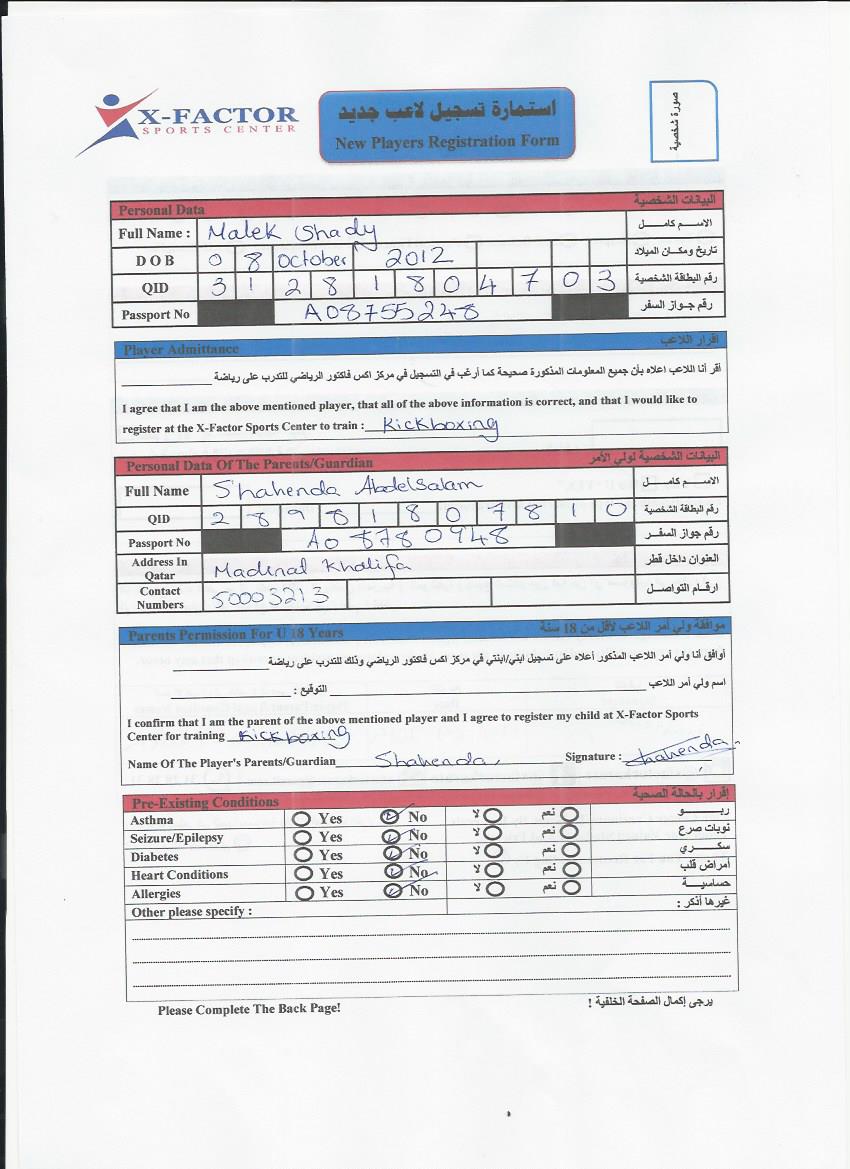 X-FACTOR
SPORTS CENTER
استمارة تسجيل لاعب جديد
New Players Registration Form
صورة شخصية
Personal Data البيانات الشخصية
Full Name : Malek Shady الاسم كامل
D O B 0 8 October 2012 تاريخ ومكان الميلاد
QID 3 1 2 8 1 8 0 4 7 0 3 رقم البطاقة الشخصية
Passport No A08755248 رقم جواز السفر
Player Admittance اقرار اللاعب
أقر أنا اللاعب اعلاه بأن جميع المعلومات المذكورة صحيحة كما أرغب في التسجيل في مركز اكس فاكتور الرياضي للتدرب على رياضة
I agree that I am the above mentioned player, that all of the above information is correct, and that I would like to
register at the X-Factor Sports Center to train : Kickboxing
Personal Data Of The Parents/Guardian البيانات الشخصية لولي الأمر
Full Name Shahenda Abdelsalam الاسم كامل
QID 2 8 9 8 1 8 0 7 8 1 0 رقم البطاقة الشخصية
Passport No A08780948 رقم جواز السفر
Address In Qatar Madinat Khalifa العنوان داخل قطر
Contact Numbers 50003213 ارقام التواصل
Parents Permission For U 18 Years موافقة ولي أمر اللاعب لأقل من 18 سنة
أوافق أنا ولي أمر اللاعب المذكور أعلاه على تسجيل ابني/ابنتي في مركز اكس فاكتور الرياضي وذلك للتدرب على رياضة
اسم ولي أمر اللاعب التوقيع :
I confirm that I am the parent of the above mentioned player and I agree to register my child at X-Factor Sports
Center for training Kickboxing
Name Of The Player's Parents/Guardian Shahenda Signature : Shahenda
Pre-Existing Conditions إقرار بالحالة الصحية
Asthma Yes No لا نعم ربو
Seizure/Epilepsy Yes No لا نعم نوبات صرع
Diabetes Yes No لا نعم سكري
Heart Conditions Yes No لا نعم أمراض قلب
Allergies Yes No لا نعم حساسية
Other please specify : غيرها أذكر :
Please Complete The Back Page! يرجى إكمال الصفحة الخلفية !